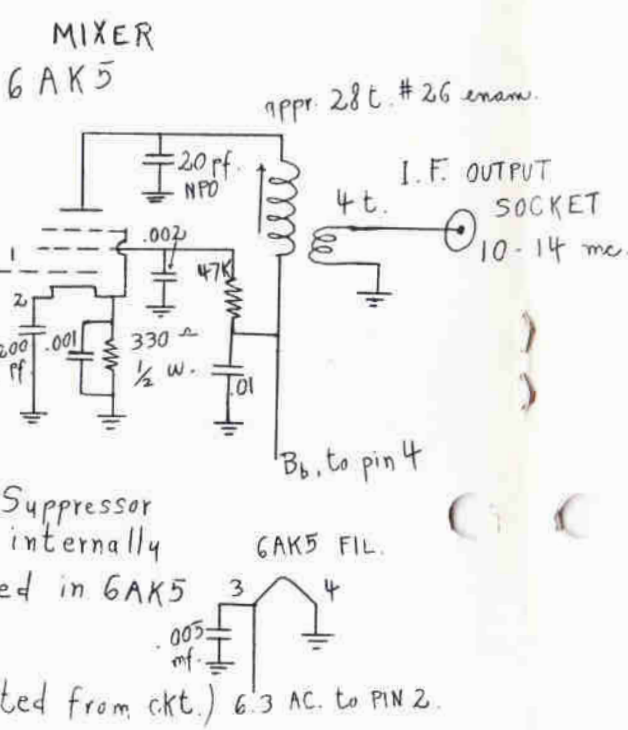 MIXER
6AK5
appr. 28 t. #26 enam.
20 pf.
NPO
I.F. OUTPUT
SOCKET
10-14 mc.
4 t.
.002
47K
1
2
200
pf.
.001
330 Ω
1/2 W.
.01
Bb, to pin 4
Suppressor
internally
ed in 6AK5
6AK5 FIL.
3
4
.005
mf.
ted from ckt.) 6.3 AC. to PIN 2.